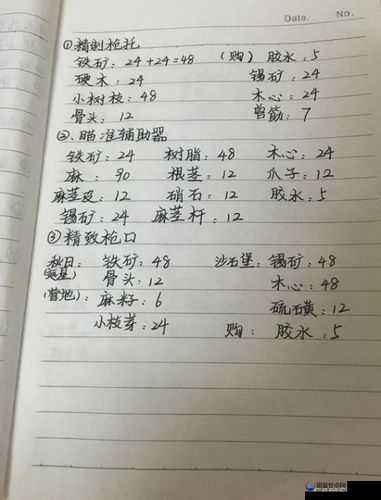 Data.    No.
①精制枪托
铁矿：24+24=48  (购) 胶水：5
硬木：24  锡矿：24
小树枝：48  木心：24
骨头：12  兽筋：7
②瞄准辅助器
铁矿：24  树脂：48  木心：24
麻：90  根茎：12  爪子：12
麻茎皮：12  硝石：12  胶水：5
锡矿：24  麻茎杆：12
③精致枪口
秋日：铁矿：48  沙石堡：锡矿：48
骨头：12  木心：48
(营地)：麻籽：6  硫磺：12
小枝芽：24  购：胶水：5